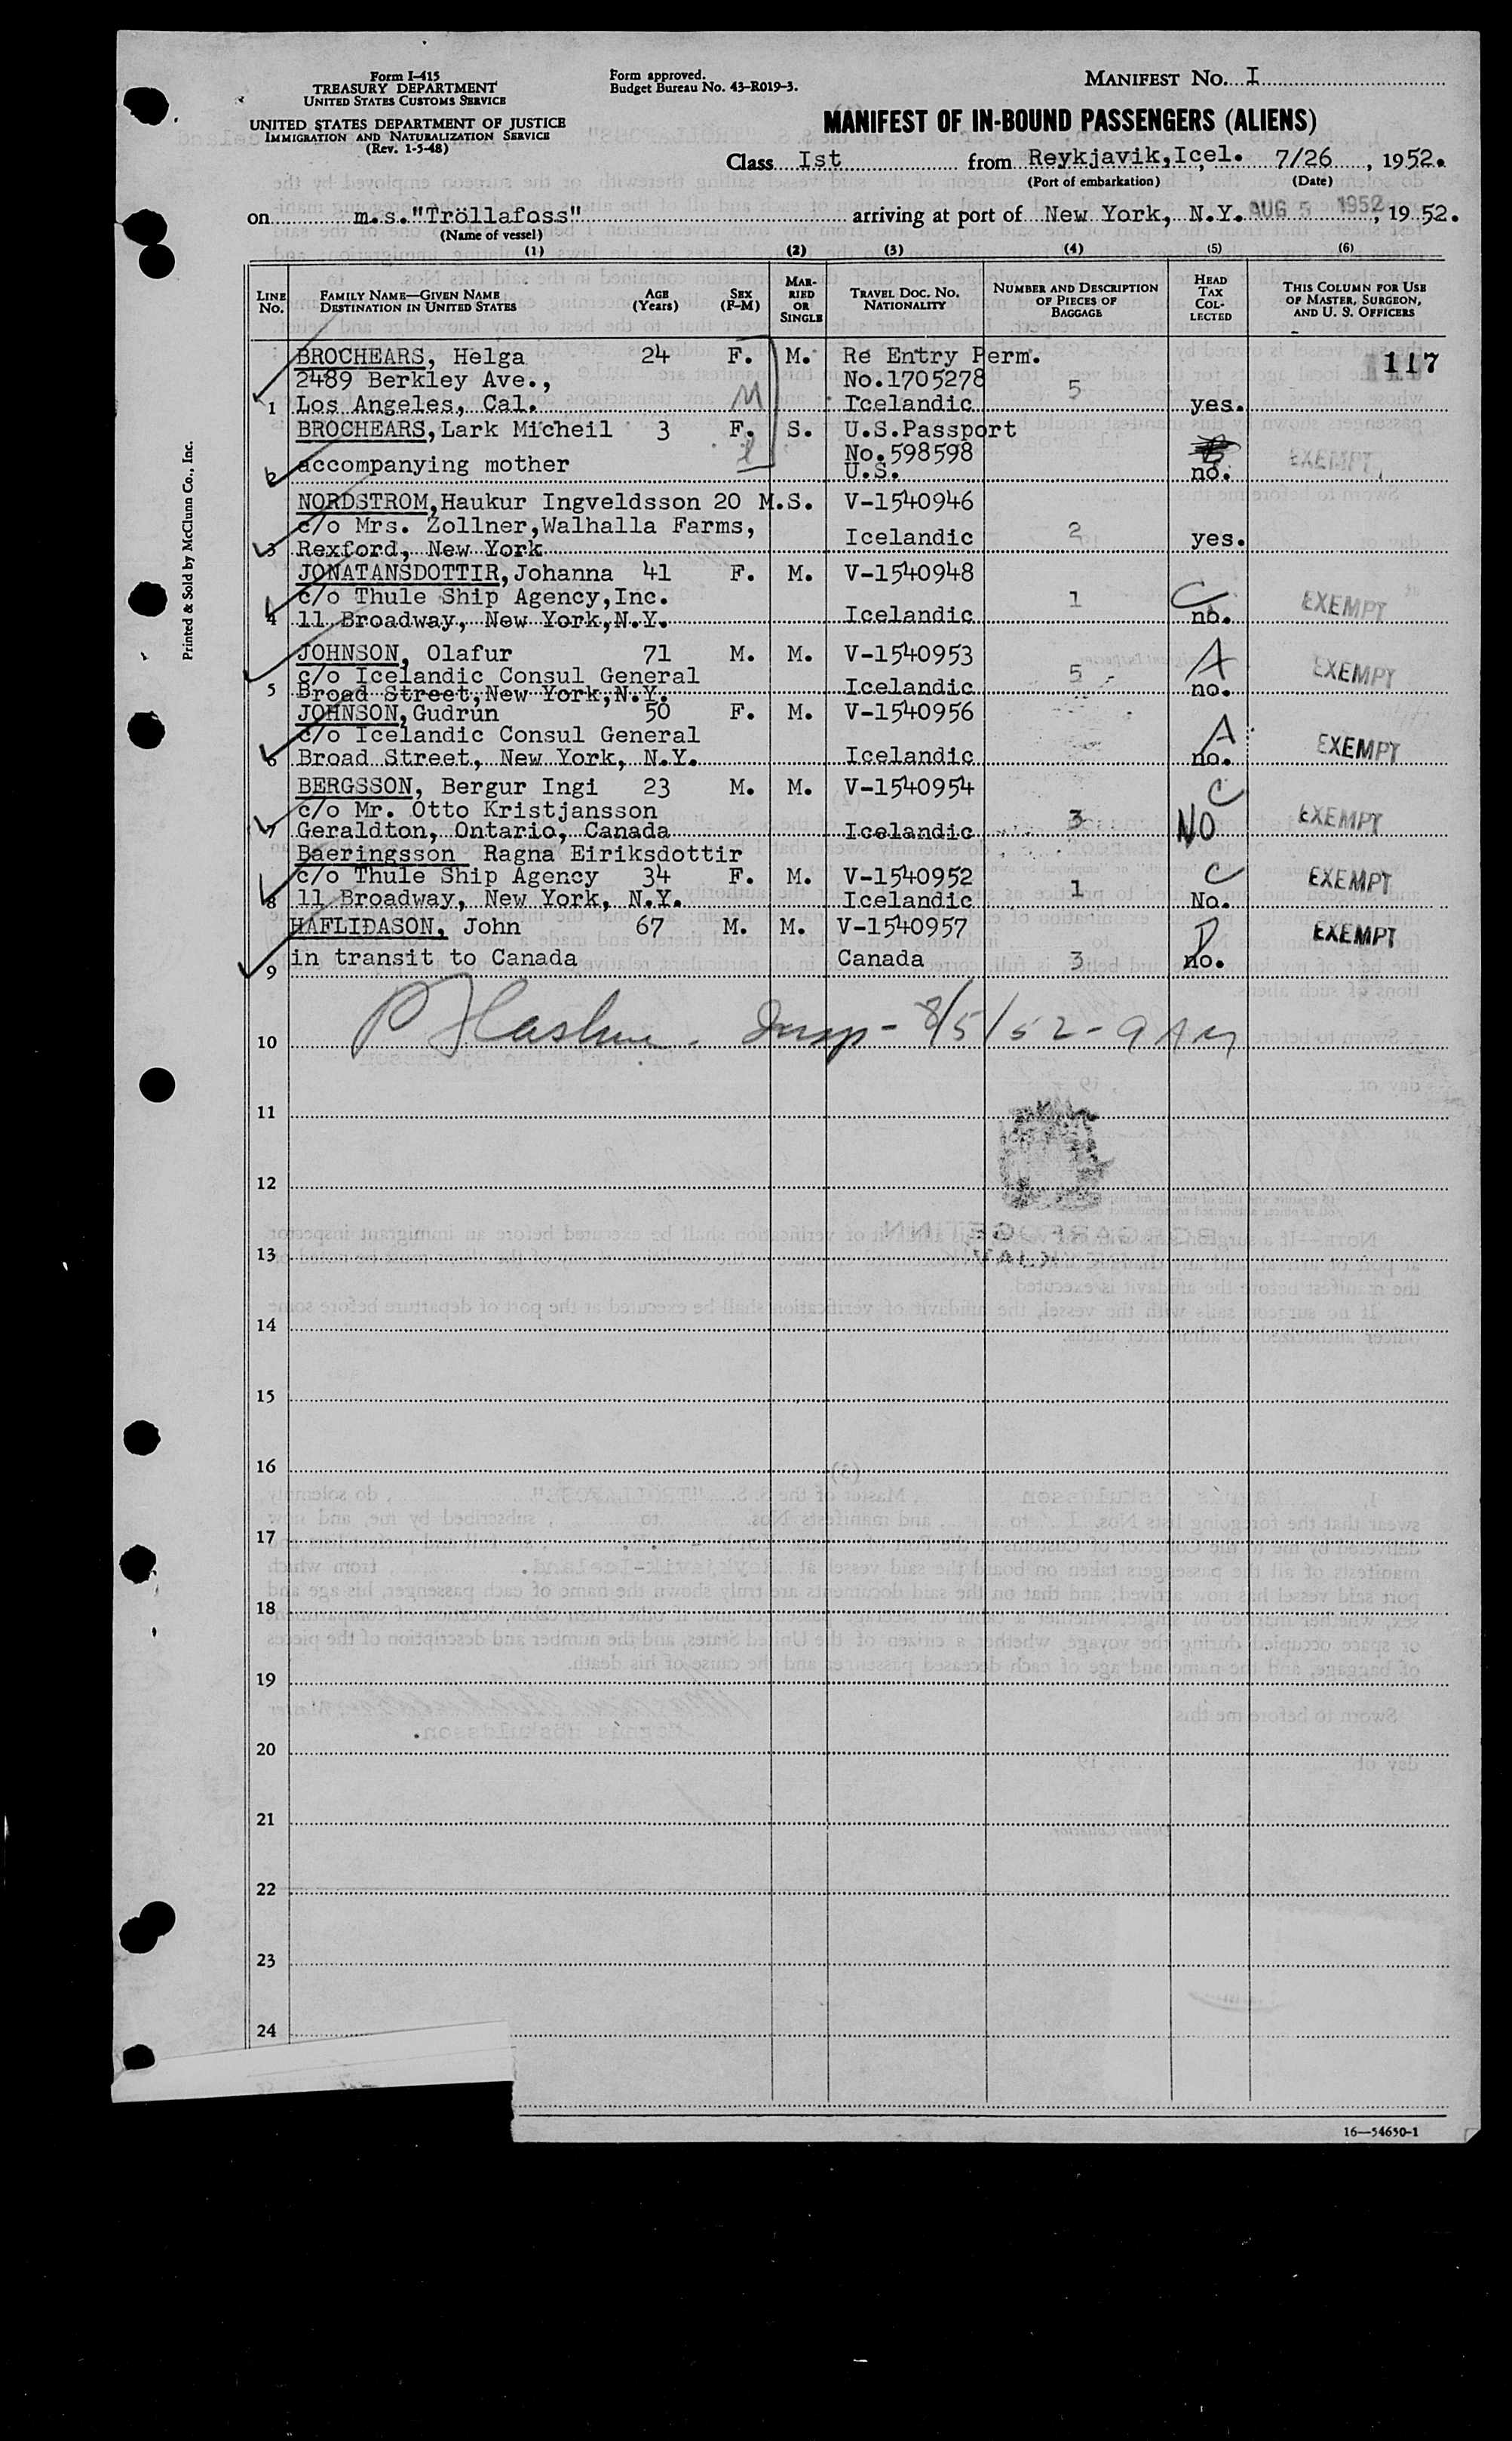 Form I-415
TREASURY DEPARTMENT
UNITED STATES CUSTOMS SERVICE
UNITED STATES DEPARTMENT OF JUSTICE
IMMIGRATION AND NATURALIZATION SERVICE
(Rev. 1-5-48)
Form approved.
Budget Bureau No. 43-R019-3.
MANIFEST NO. I
MANIFEST OF IN-BOUND PASSENGERS (ALIENS)
Class Ist from Reykjavik, Icel. 7/26, 1952.
(Port of embarkation) (Date)
on m.s."Tröllafoss" arriving at port of New York, N.Y. AUG 5 1952, 1952.
(Name of vessel)
(1) (2) (3) (4) (5) (6)
LINE No. FAMILY NAME—GIVEN NAME DESTINATION IN UNITED STATES AGE (Years) SEX (F-M) MARRIED OR SINGLE TRAVEL DOC. NO. NATIONALITY NUMBER AND DESCRIPTION OF PIECES OF BAGGAGE HEAD TAX COLLECTED THIS COLUMN FOR USE OF MASTER, SURGEON, AND U. S. OFFICERS
BROCHEARS, Helga 24 F. M. Re Entry Perm. 117
2489 Berkley Ave., No.1705278 5
1 Los Angeles, Cal. M Icelandic yes.
BROCHEARS,Lark Micheil 3 F. S. U.S.Passport
No.598598 EXEMPT
2 accompanying mother U.S. no.
NORDSTROM,Haukur Ingveldsson 20 M.S. V-1540946
c/o Mrs. Zollner,Walhalla Farms, 2
3 Rexford, New York Icelandic yes.
JONATANSDOTTIR,Johanna 41 F. M. V-1540948
c/o Thule Ship Agency,Inc. 1 C EXEMPT
4 11 Broadway, New York,N.Y. Icelandic no.
JOHNSON, Olafur 71 M. M. V-1540953 A
c/o Icelandic Consul General 5 EXEMPT
5 Broad Street,New York,N.Y. Icelandic no.
JOHNSON,Gudrun 50 F. M. V-1540956
c/o Icelandic Consul General A EXEMPT
6 Broad Street, New York, N.Y. Icelandic no.
BERGSSON, Bergur Ingi 23 M. M. V-1540954 C
c/o Mr. Otto Kristjansson 3 EXEMPT
7 Geraldton, Ontario, Canada Icelandic NO
Baeringsson Ragna Eiriksdottir
c/o Thule Ship Agency 34 F. M. V-1540952 C EXEMPT
8 11 Broadway, New York, N.Y. Icelandic 1 No.
HAFLIDASON, John 67 M. M. V-1540957 D EXEMPT
9 in transit to Canada Canada 3 no.
10 Insp - 8/5/52 - 9 AM
11
12
13
14
15
16
17
18
19
20
21
22
23
24
16—54650-1
Printed & Sold by McClunn Co., Inc.